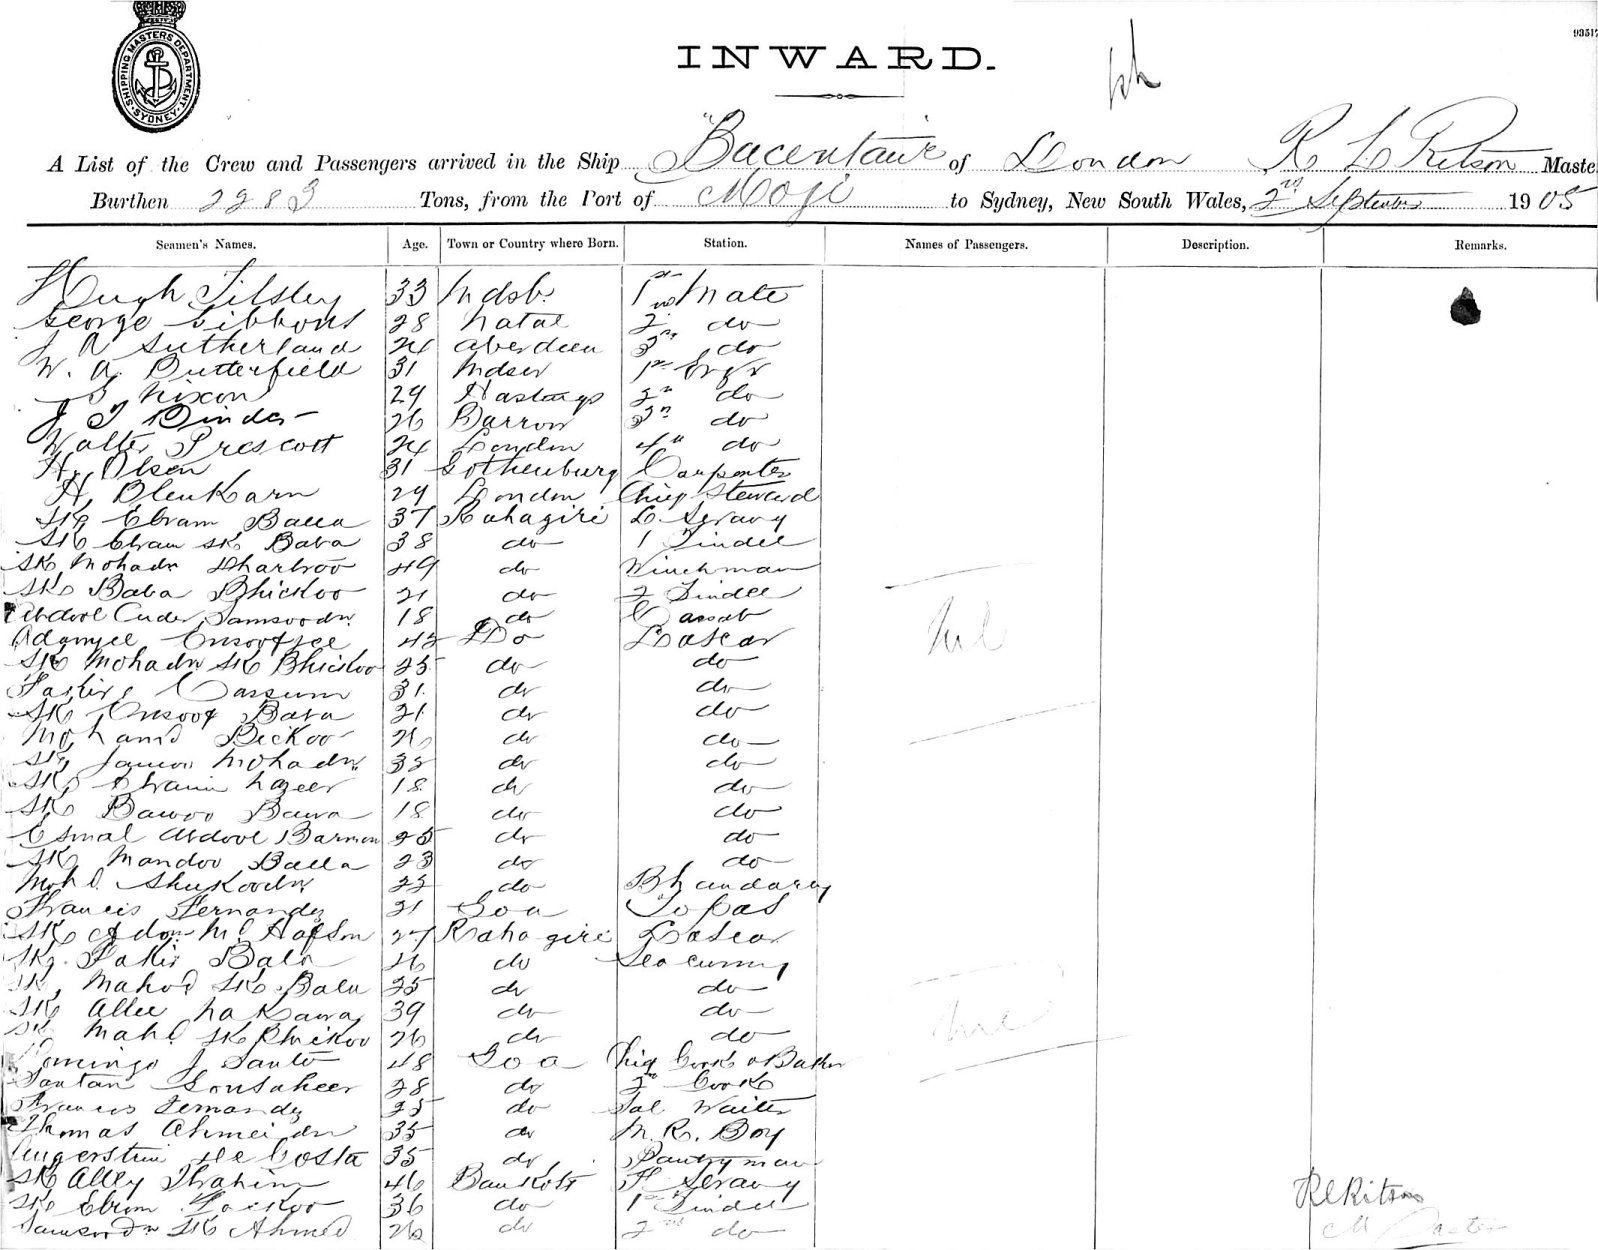 SHIPPING MASTERS DEPARTMENT SYDNEY
INWARD.
A List of the Crew and Passengers arrived in the Ship "Bucentaur" of London R L Ritson Maste
Burthen 2283 Tons, from the Port of Moji to Sydney, New South Wales, 2nd September 1905
Seamen's Names. Age. Town or Country where Born. Station. Names of Passengers. Description. Remarks.
Hugh Tilsley 33 1st Mate
George Gibbons 28 Natal 2nd do
J Sutherland 24 Aberdeen 3rd do
W. A. Butterfield 31 1st Engr
Nixon 29 Hastings 2nd do
J T Binder 26 Barrow 3rd do
Walter Prescott 24 London 4th do
H. Olsen 31 Gothenburg Carpenter
H. Blenkarn 29 London Chief Steward
SK Ebram Balla 37 Ratnagiri D. Serang
SK Ebram SK Bava 38 do 1 Tindel
SK Mohadn 49 do Winchman
SK Baba Bhickoo 21 do 2 Tindel
Abdool Cader Samsoodn 18 do Cassab
Adamjee Cusoofjee 42 Do Lascar
SK Mohadn SK Bhickoo 25 do do
Cassum 31 do do
SK Cusoof Bava 21 do do
Mohamd Bickoo 26 do do
SK Mohadn do do
SK Ebraim 18 do do
SK Bawoo Bawa 18 do do
Esmal Abdool Barmon 25 do do
SK Mandoo Balla 23 do do
Mohd. Shukoodn 22 do Bhandary
Francis Fernandez 21 Goa Topas
SK 27 Ratnagiri Lascar
SK Fakir Bala 26 do
SK Mahod SK Bala 25 do do
SK Allee 39 do do
SK Mahd SK Bhickoo 26 do do
Domingo J Santo 48 Goa Chief Cook & Baker
28 do 2nd Cook
Francis Fernandez 25 do Sal Waiter
Thomas 35 do M. R. Boy
De Costa 35 do Pantryman
SK Alley Ibrahim 46 Bankott F. Serang
SK Ebrim 36 do 1st Tindel
Samsoodn SK Ahmed 26 do 2nd do
Nil
Nil
RLRitson
Master